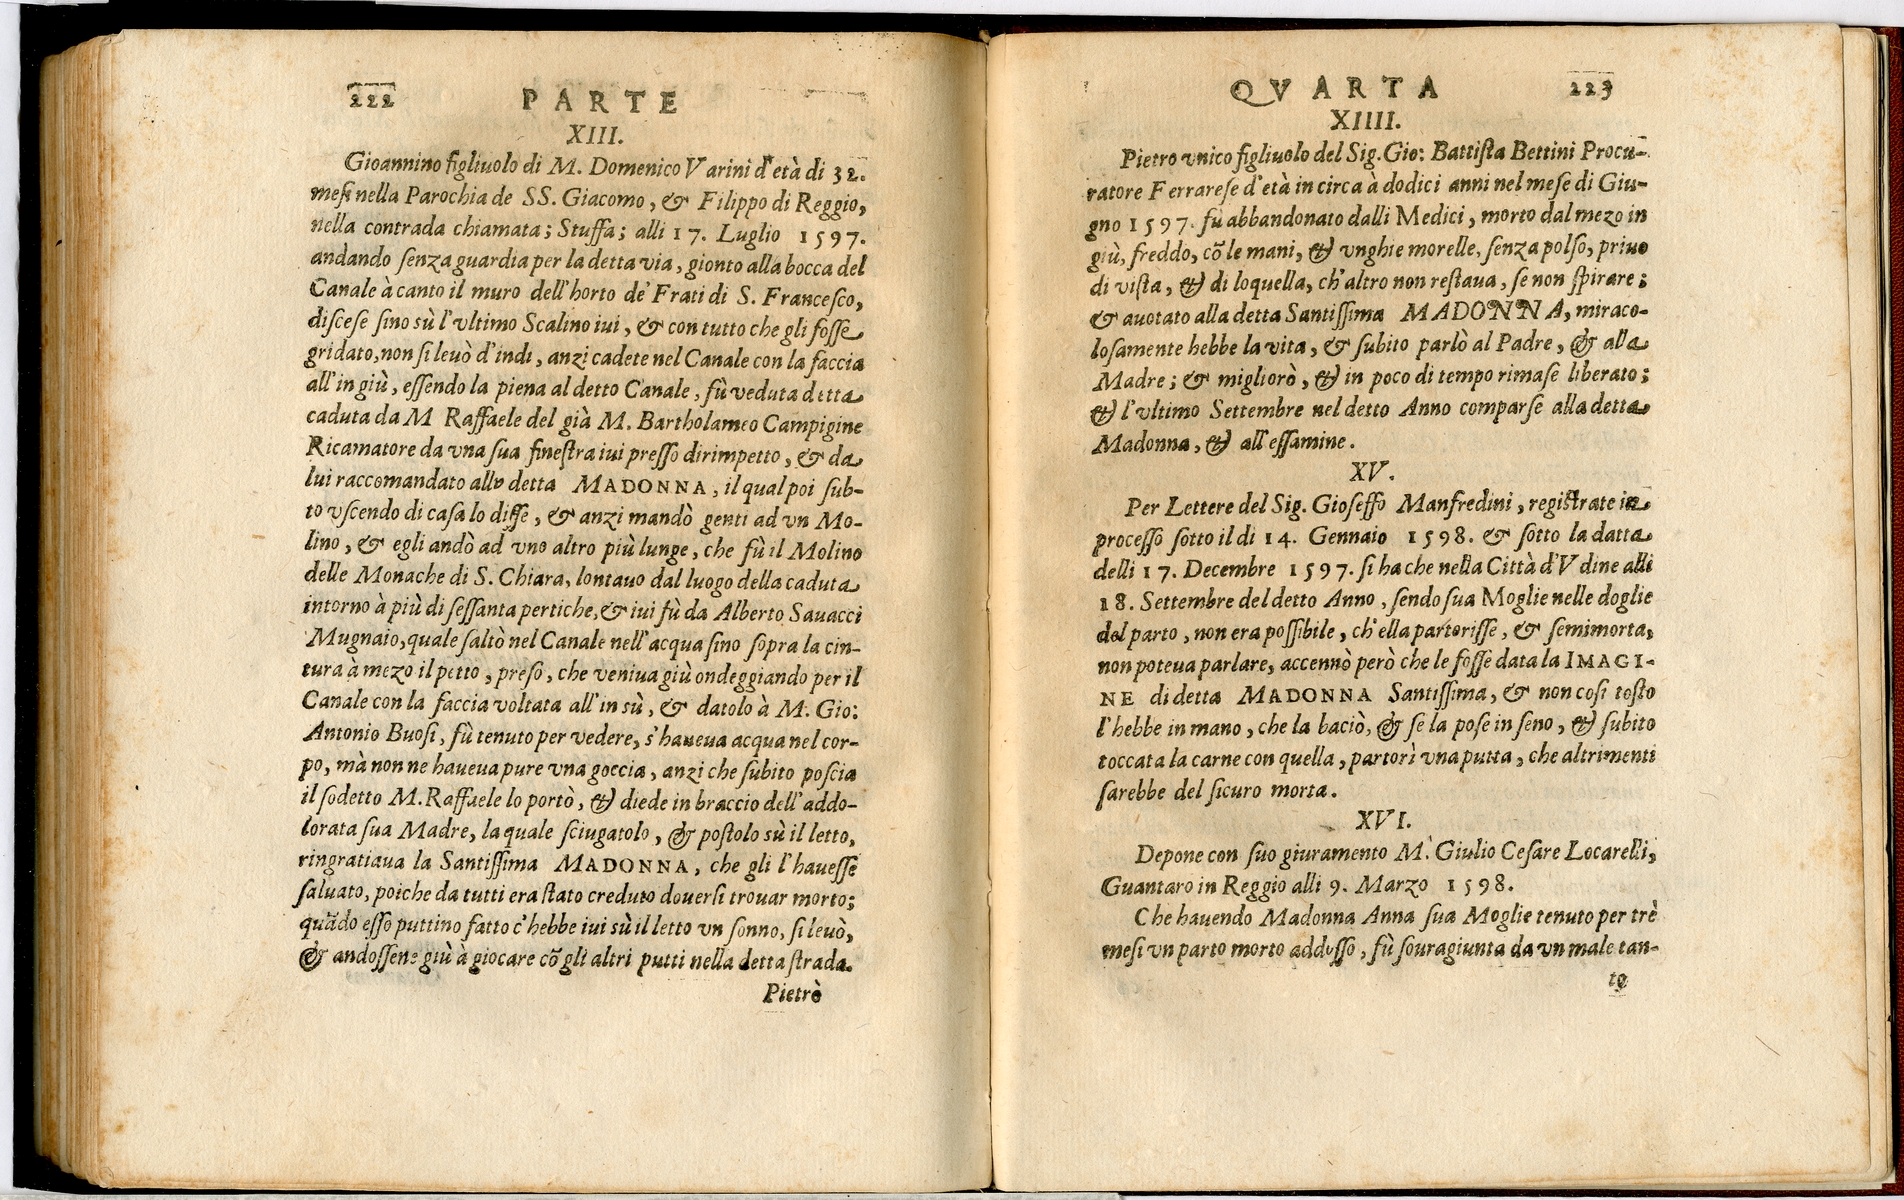 222 PARTE
XIII.
Gioannino figliuolo di M. Domenico Varini d'età di 32.
mesi nella Parochia de SS. Giacomo, & Filippo di Reggio,
nella contrada chiamata; Stuffa; alli 17. Luglio 1597.
andando senza guardia per la detta via, gionto alla bocca del
Canale à canto il muro dell'horto de' Frati di S. Francesco,
discese sino sù l'vltimo Scalino iui, & con tutto che gli fosse
gridato, non si leuò d'indi, anzi cadete nel Canale con la faccia
all'in giù, essendo la piena al detto Canale, fù veduta detta
caduta da M Raffaele del già M. Bartholameo Campigine
Ricamatore da vna sua finestra iui presso dirimpetto, & da
lui raccomandato alla detta MADONNA, il qual poi sub-
to vscendo di casa lo disse, & anzi mandò genti ad vn Mo-
lino, & egli andò ad vno altro più lunge, che fù il Molino
delle Monache di S. Chiara, lontauo dal luogo della caduta
intorno à più di sessanta pertiche, & iui fù da Alberto Sauacci
Mugnaio, quale saltò nel Canale nell'acqua sino sopra la cin-
tura à mezo il petto, preso, che veniua giù ondeggiando per il
Canale con la faccia voltata all'in sù, & datolo à M. Gio:
Antonio Buosi, fù tenuto per vedere, s'haueua acqua nel cor-
po, mà non ne haueua pure vna goccia, anzi che subito poscia
il sodetto M. Raffaele lo portò, & diede in braccio dell'addo-
lorata sua Madre, la quale sciugatolo, & postolo sù il letto,
ringratiaua la Santissima MADONNA, che gli l'hauesse
saluato, poiche da tutti era stato creduto douersi trouar morto;
quãdo esso puttino fatto c'hebbe iui sù il letto vn sonno, si leuò,
& andossene giù à giocare cõ gli altri putti nella detta strada.
Pietrò
QVARTA 223
XIIII.
Pietro vnico figliuolo del Sig. Gio: Battista Bettini Procu-
ratore Ferrarese d'età in circa à dodici anni nel mese di Giu-
gno 1597. fù abbandonato dalli Medici, morto dal mezo in
giù, freddo, cõ le mani, & vnghie morelle, senza polso, priuo
di vista, & di loquella, ch'altro non restaua, se non spirare;
& auotato alla detta Santissima MADONNA, miraco-
losamente hebbe la vita, & subito parlò al Padre, & alla
Madre; & migliorò, & in poco di tempo rimase liberato;
& l'vltimo Settembre nel detto Anno comparse alla detta
Madonna, & all'essamine.
XV.
Per Lettere del Sig. Gioseffo Manfredini, registrate in
processo sotto il di 14. Gennaio 1598. & sotto la datta
delli 17. Decembre 1597. si ha che nella Città d'Vdine alli
18. Settembre del detto Anno, sendo sua Moglie nelle doglie
del parto, non era possibile, ch'ella partorisse, & semimorta,
non poteua parlare, accennò però che le fosse data la IMAGI-
NE di detta MADONNA Santissima, & non cosi tosto
l'hebbe in mano, che la baciò, & se la pose in seno, & subito
toccata la carne con quella, partorì vna putta, che altrimenti
sarebbe del sicuro morta.
XVI.
Depone con suo giuramento M. Giulio Cesare Locarelli,
Guantaro in Reggio alli 9. Marzo 1598.
Che hauendo Madonna Anna sua Moglie tenuto per trè
mesi vn parto morto addosso, fù souragiunta da vn male tan-
to